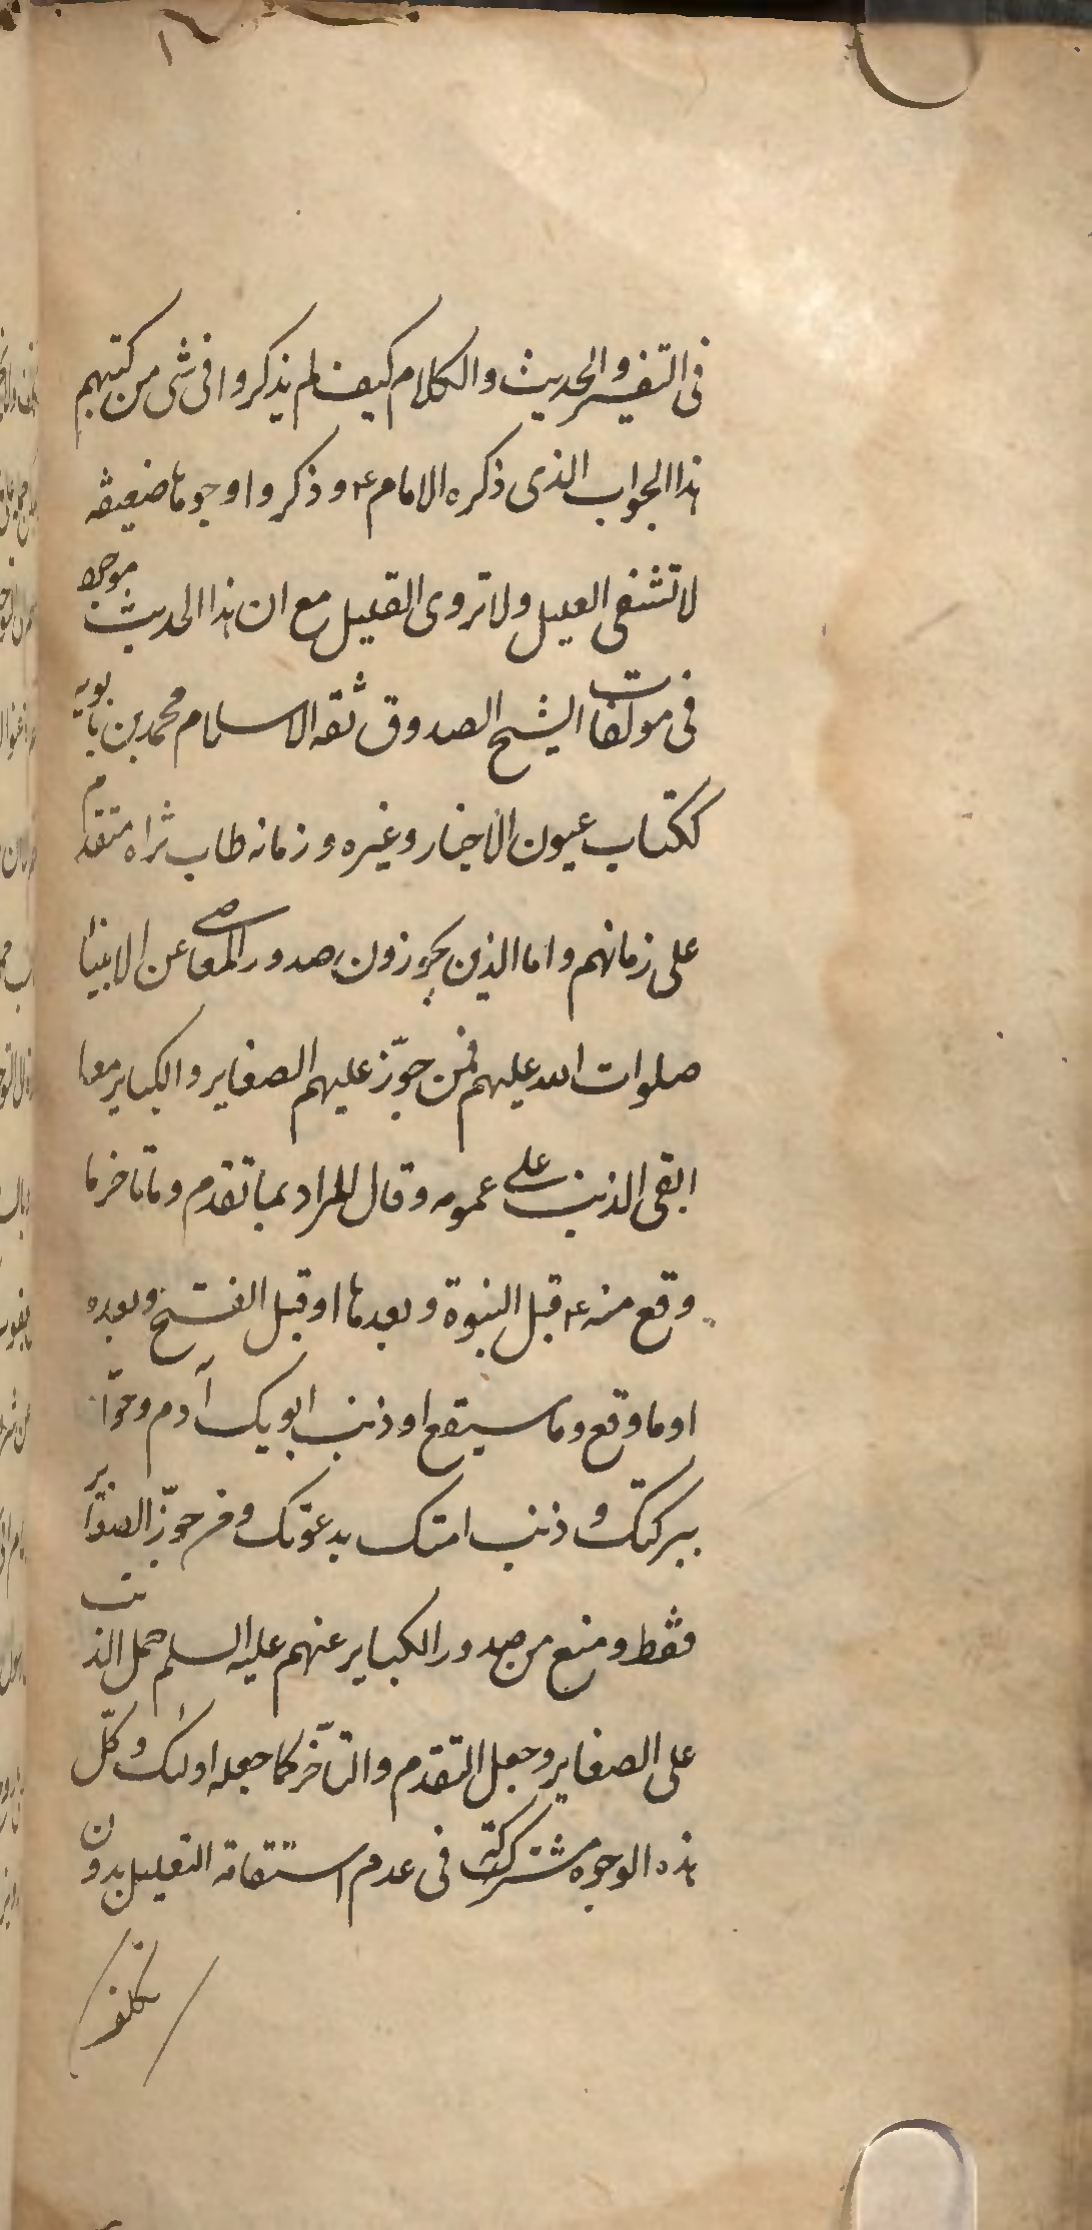 فى التفسير والحديث والكلام كيف لم يذكروا فى شى من كتبهم
هذا الجواب الذى ذكره الامام ع و ذكروا وجوها ضعيفه
لا تشفى العليل ولا تروى الغليل مع ان هذا الحديث موجود
فى مولفات الشيخ الصدوق ثقه الاسلام محمد بن بابويه
ككتاب عيون الاخبار وغيره و زمانه طاب ثراه متقدم
على زمانهم واما الذين يجوزون صدور المعاصى عن الانبيآ
صلوات الله عليهم فمن جوّز عليهم الصغاير والكباير معا
ابقى الذنب على عمومه وقال المراد بما تقدم وما تاخر ما
وقع منه ع قبل النبوة وبعدها او قبل الفتح وبعده
او ما وقع وما سيقع او ذنب ابويك آدم وحوّآ
ببركتك و ذنب امتك بدعوتك ومن جوّز الصغاير
فقط ومنع من صدور الكباير عنهم عليه السلم حمل الذنب
على الصغاير وجعل التقدم والتآخّر كما جعله اولئك وكلّ
هذه الوجوه مشتركة فى عدم استقامة التعليل بدون
تكلف